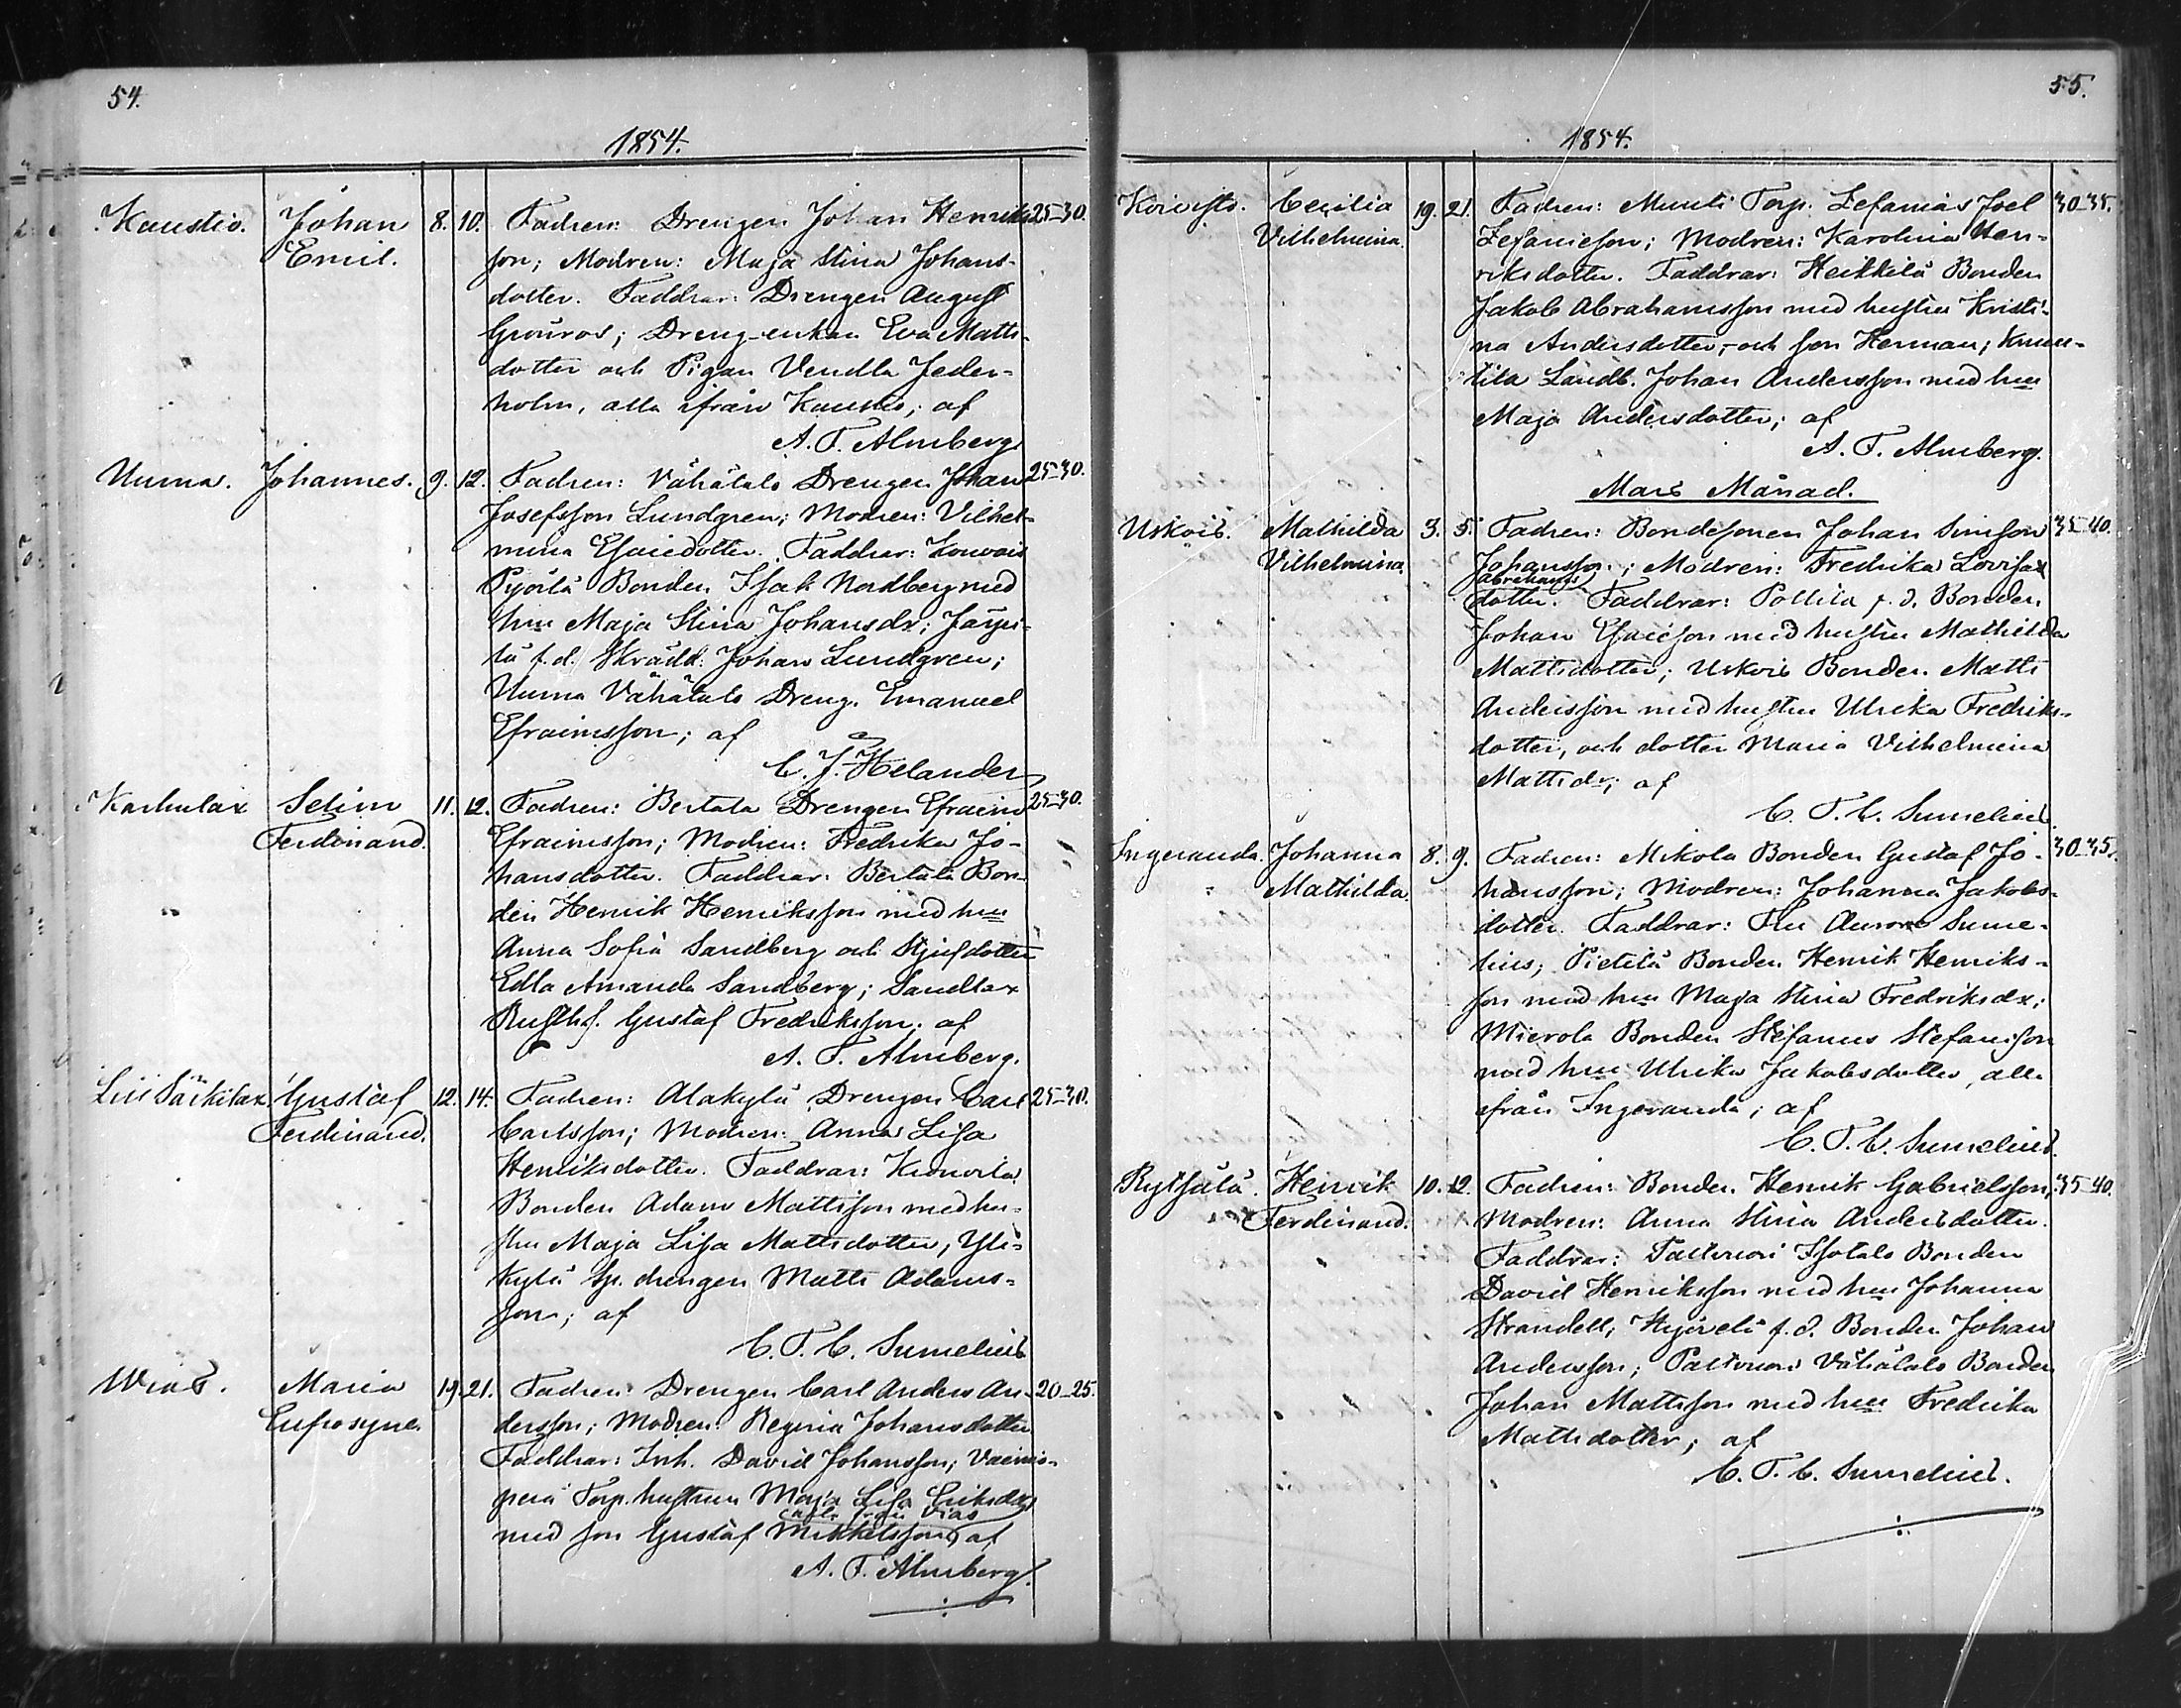 54.
1854.
Kaustio. Johan 8. 10. Fadren: Drengen Johan Henriks 25-30.
Emil. son; Modren: Maja Stina Johans-
dotter. Faddrar: Drengen August
Grönros; Dreng-enkan Eva Matts-
dotter och Pigan Vendla Jeder-
holm, alla ifrån Kaustio; af
A. F. Almberg.
Numa. Johannes. 9. 12. Fadren: Vähätalo Drengen Johan 25-30.
Josefsson Lundgren; Modren: Vilhel-
mina Esaiedotter. Faddrar:
Pyörlä Bonden Isak Nordberg med
hu Maja Stina Johansdr;
f.d. Skrädd. Johan Lundgren;
Numa Vähätalo Dreng. Emanuel
Efraimsson; af
C. J. Helander
Karhulax Selim 11. 12. Fadren: Bertala Drengen Efraim 25-30.
Ferdinand. Efraimsson; Modren: Fredrika Jo-
hansdotter. Faddrar: Bertala Bon-
den Henrik Henriksson med hu
Anna Sofia Sandberg och Stjufdotter
Edla Amanda Sandberg; Sandlax
Rusth. Gustaf Fredriksson; af
A. F. Almberg.
Särkilax Gustaf 12. 14. Fadren: Alakylä Drengen Carl 25-30.
Ferdinand. Carlsson; Modren: Anna Lisa
Henriksdotter. Faddrar:
Bonden Adam Mattsson med hu-
stru Maja Lisa Mattsdotter, Yli-
kylä drengen Matts Adams-
son; af
C. T. C. Sumelius
Wias. Maria 19. 21. Fadren: Drengen Carl Anders An- 20-25.
Eufrosyne. dersson; Modren: Regina Johansdotter
Faddrar: Inh. David Johansson; Vainio-
perä Torp. hustrun Maja Lisa Eriksdr
alle från Vias
med son Gustaf Mikkelsson; af
A. F. Almberg.
55.
1854.
Koivisto. Cecilia 19. 21. Fadren: Munti Torp. Zefanias Joel 30-35.
Vilhelmina. Zefanieson; Modren: Karolina Hen-
riksdotter. Faddrar: Heikkilä Bonden
Jakob Abrahamsson med hustru Kristi-
na Andersdotter, och son Herman;
Landb. Johan Andersson med hu
Maja Andersdotter; af
A. F. Almberg.
Mars Månad.
Uskois. Mathilda 3. 5. Fadren: Bondesonen Johan Simson 35-40.
Vilhelmina. Johansson; Modren: Fredrika Lovisa
Abrahams
dotter. Faddrar: Pollila f.d. Bonden
Johan Esaieson med hustru Mathilda
Mattsdotter; Uskois Bonden Matts
Andersson med hustru Ulrika Fredriks-
dotter, och dotter Maria Vilhelmina
Mattsdr; af
C. T. C. Sumelius.
Ingeranda. Johanna 8. 9. Fadren: Mikola Bonden Gustaf Jo- 30-35.
Mathilda. hansson; Modren: Johanna Jakobs-
dotter. Faddrar: Fru Aurora Sume-
lius; Pietilä Bonden Henrik Henriks-
son med hu Maja Stina Fredriksdr;
Mierola Bonden Stefanus Stefanson
med hu Ulrika Jakobsdotter, alla
ifrån Ingeranda; af
C. T. C. Sumelius.
Rytsälä. Henrik 10. 12. Fadren: Bonden Henrik Gabrielsson, 35-40.
Ferdinand. Modren: Anna Stina Andersdotter.
Faddrar: Isotalo Bonden
David Henriksson med hu Johanna
Strandell; f.d. Bonden Johan
Andersson; Vähätalo Bonden
Johan Mattsson med hu Fredrika
Mattsdotter; af
C. T. C. Sumelius.